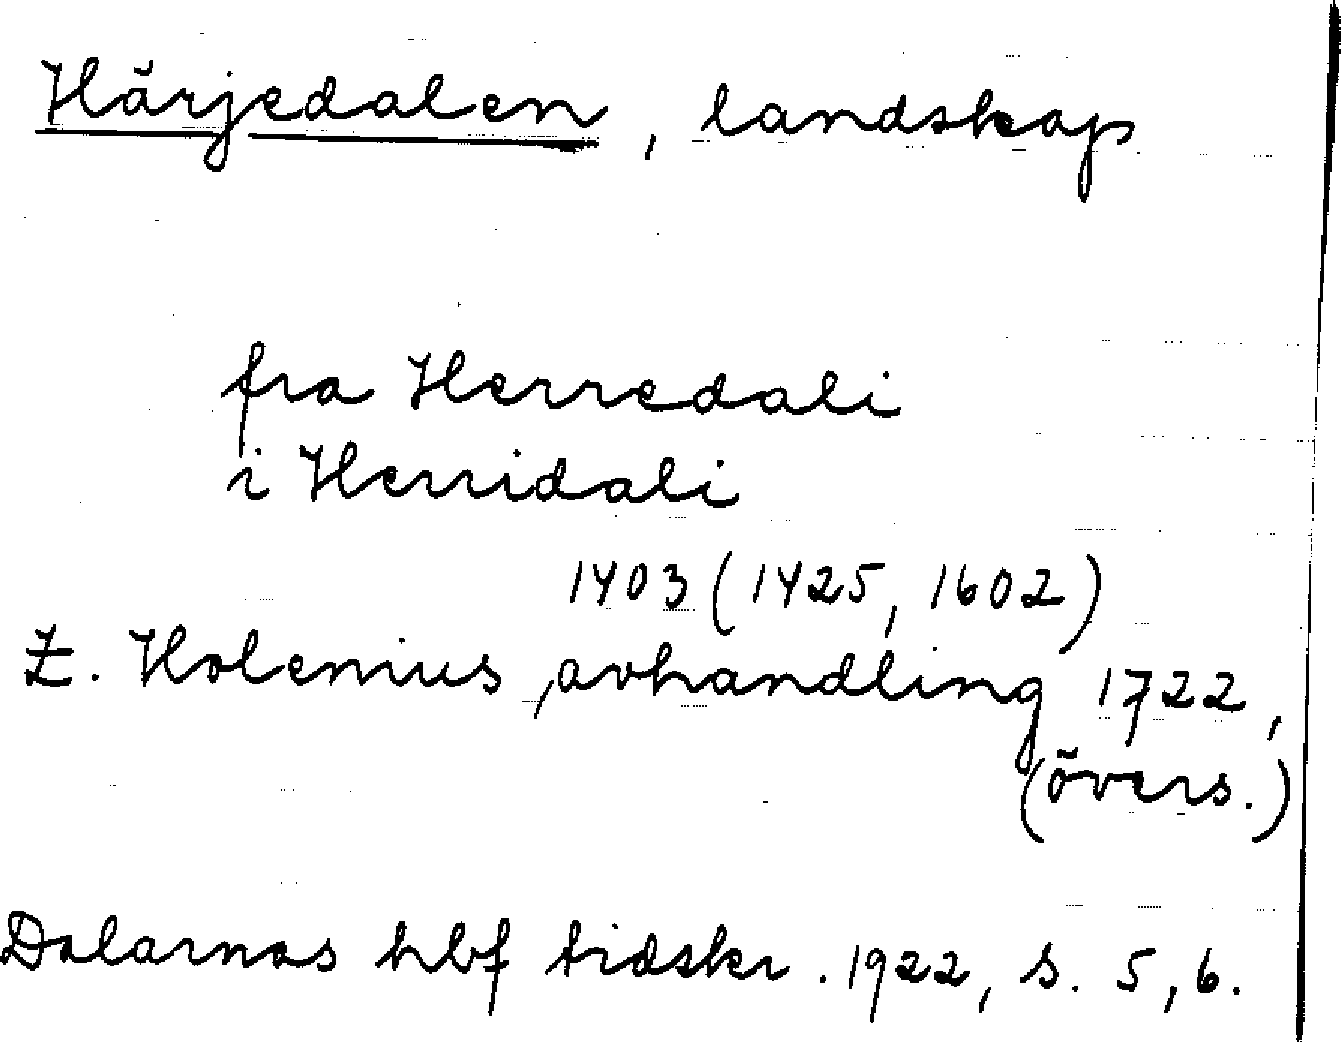 Härjedalen, landskap
fra Herredali
i Herridali
1403 (1425, 1602)
Z. Holenius, avhandling 1722,
(övers.)
Dalarnas hbf tidskr. 1922, s. 5, 6.